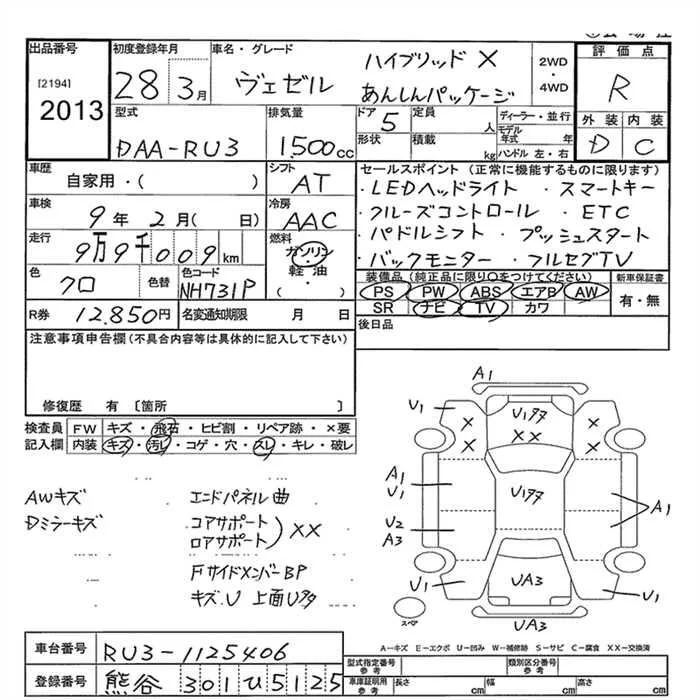 出品番号
[2194]
2013
初度登録年月
28 3月
車名・グレード
ヴェゼル
ハイブリッド X
あんしんパッケージ
2WD
・
4WD
評価点
R
外装 内装
D C
型式
DAA-RU3
排気量
1500cc
ドア 5
定員 人
ディーラー・並行
モデル年式 年
形状
積載 kg
ハンドル 左・右
車歴
自家用・( )
シフト
AT
セールスポイント (正常に機能するものに限ります)
・LEDヘッドライト ・スマートキー
・クルーズコントロール ・ETC
・パドルシフト ・プッシュスタート
・バックモニター ・フルセグTV
車検
9年 2月( 日)
冷房
AAC
走行
9万9千009km
燃料
ガソリン・
軽油・
( )
色
クロ
色替
色コード
NH731P
装備品(純正品に限り○をつけてください)
PS PW ABS エアB AW
SR ナビ TV カワ
新車保証書
有・無
R券 12,850円
名変通知期限 月 日
後日品
注意事項申告欄(不具合内容等は具体的に記入して下さい)
修復歴 有 〔箇所 〕
検査員 FW キズ・飛石・ヒビ割・リペア跡・×要
記入欄 内装 キズ・汚レ・コゲ・穴・スレ・キレ・破レ
AWキズ
Dミラーキズ
エンドパネル曲
コアサポート
ロアサポート
) XX
FサイドメンバーBP
キズ.U 上面Uタタ
A1
U1
U1タタ
X
X
X X
X
X
A1
U1
U1タタ
A1
U2
A3
U1
UA3
U1
スペア
UA3
A−キズ E−エクボ U−凹み W−補修跡 S−サビ C−腐食 XX−交換済
車台番号 RU3-1125406
登録番号 熊谷 301ひ5125
型式指定番号
参考
類別区分番号
参考
車庫証明用
参考
長さ cm
幅 cm
高さ cm